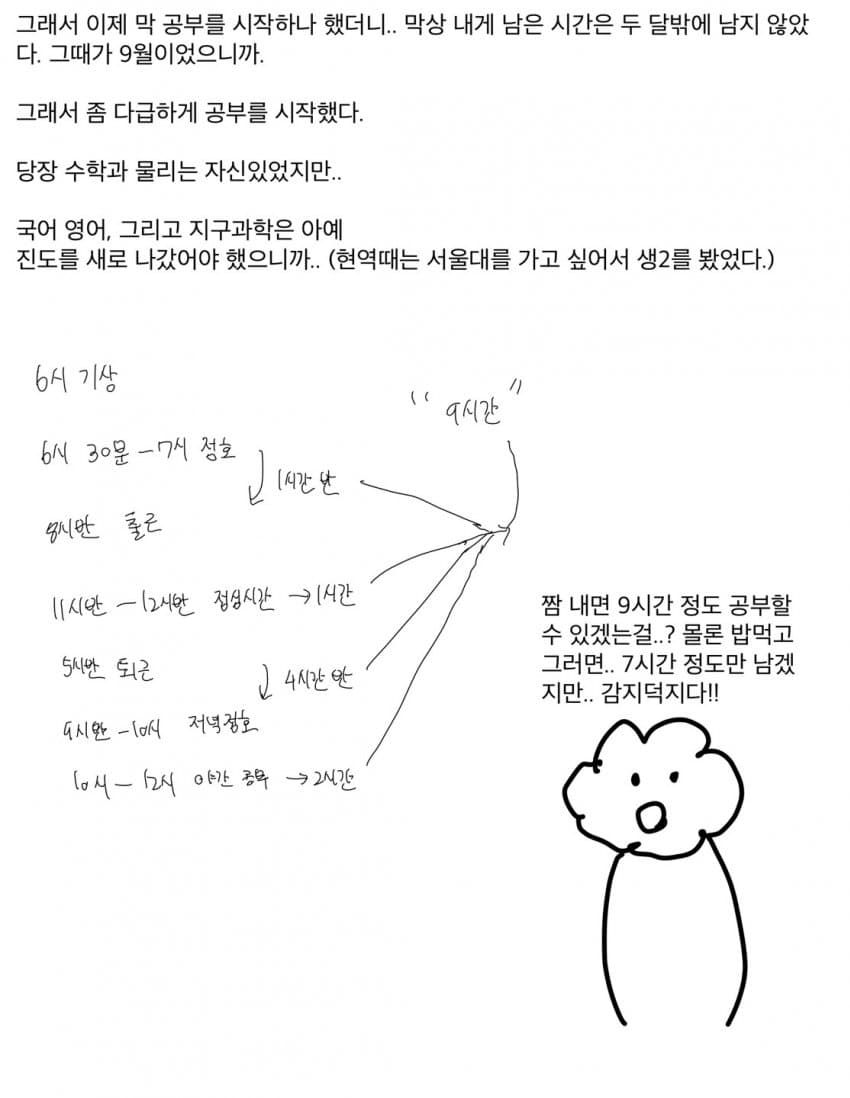 그래서 이제 막 공부를 시작하나 했더니.. 막상 내게 남은 시간은 두 달밖에 남지 않았
다. 그때가 9월이었으니까.
그래서 좀 다급하게 공부를 시작했다.
당장 수학과 물리는 자신있었지만..
국어 영어, 그리고 지구과학은 아예
진도를 새로 나갔어야 했으니까.. (현역때는 서울대를 가고 싶어서 생2를 봤었다.)
6시 기상
"9시간"
6시 30분 - 7시 점호
1시간 반
8시반 출근
11시반 - 12시반 점심시간 → 1시간
5시반 퇴근
4시간 반
9시반 - 10시 저녁점호
10시 - 12시 야간 공부 → 2시간
짬 내면 9시간 정도 공부할
수 있겠는걸..? 몰론 밥먹고
그러면.. 7시간 정도만 남겠
지만.. 감지덕지다!!